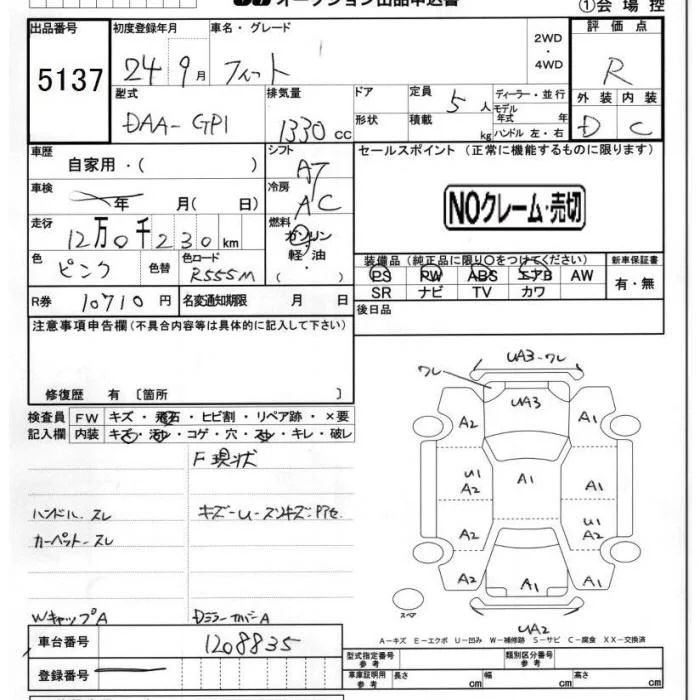 オークション出品申込書
①会場控
出品番号 初度登録年月 車名・グレード 2WD・4WD 評価点
5137 24年9月 フィット R
型式 排気量 ドア 定員 5人 ディーラー・並行 外装 内装
モデル年式 年
DAA-GP1 1330cc 形状 積載 kg ハンドル 左・右 D C
車歴 自家用・( ) シフト AT セールスポイント (正常に機能するものに限ります)
車検 年 月( 日) 冷房 AC NOクレーム・売切
走行 12万0千230km 燃料 ガソリン 軽油・( )
色 ピンク 色替 色コード R555M
装備品 (純正品に限り○をつけてください) 新車保証書
PS PW ABS エアB AW 有・無
SR ナビ TV カワ
R券 10710円 名変通知期限 月 日 後日品
注意事項申告欄(不具合内容等は具体的に記入して下さい)
修復歴 有 [箇所 ]
検査員 FW キズ・飛石・ヒビ割・リペア跡・×要
記入欄 内装 キズ・汚れ・コゲ・穴・スレ・キレ・破レ
F現状
ハンドル、スレ
カーペット、スレ
WキャップA DミラーカバーA
UA3-ワレ
ワレ
UA3
A2 A1
U1 A2 A1 A1
A2 U1 A2
A2 A1 A1
スペア
UA2
A-キズ E-エクボ U-凹み W-補修跡 S-サビ C-腐食 XX-交換済
車台番号 1208835
型式指定番号 参考 類別区分番号 参考
登録番号 車庫証明用 参考 長さ cm 幅 cm 高さ cm